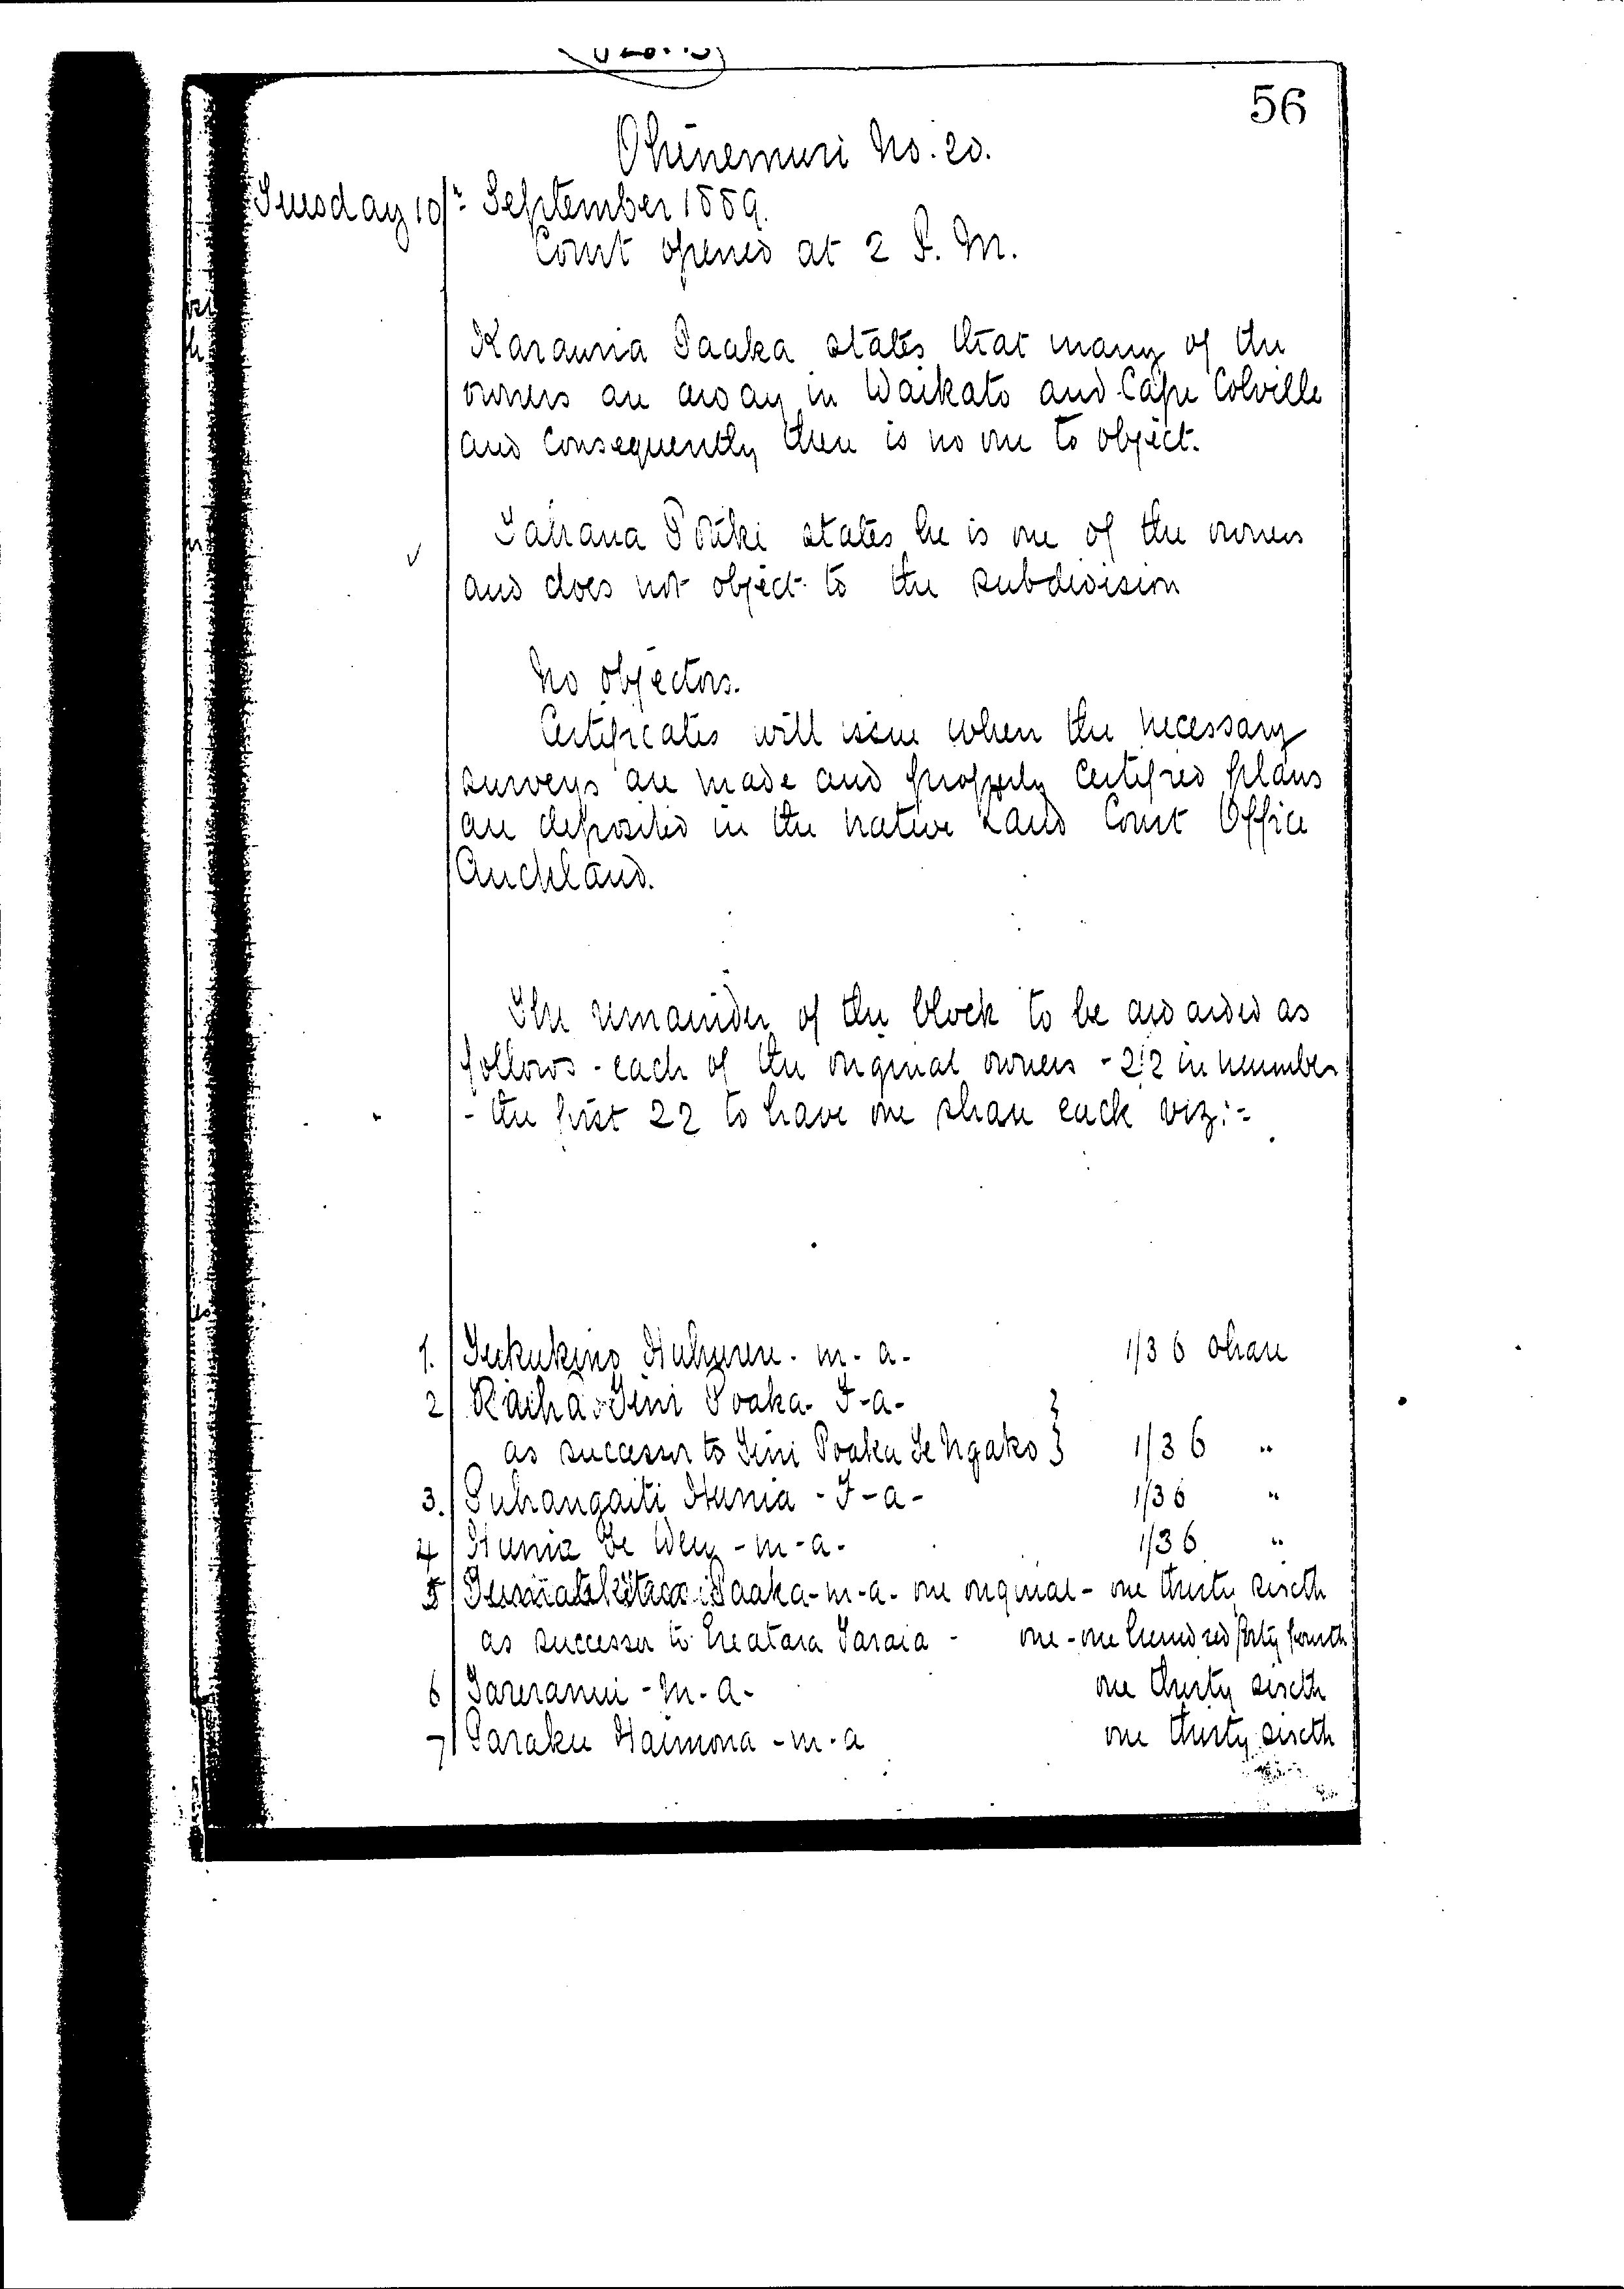 56
Ohinemuri No. 20.
Tuesday 10th September 1889.
Court opened at 2 P. M.
Karauna Paaka states that many of the
owners are away in Waikato and Cape Colville
and consequently there is no one to object.
Tairana Potiki states he is one of the owners
and does not object to the subdivision
No objectors.
Certificates will issue when the necessary
surveys are made and properly certified plans
are deposited in the Native Land Court Office
Auckland.
The remainder of the block to be awarded as
follows - each of the original owners - 22 in number
- the first 22 to have one share each viz:-
1. Tukukino Huhurere. m. a. 1/36 share
2 Raiha Tini Poaka. F-a-
as successor to Tini Poaka Te Ngako } 1/36 "
3. Puhangaiti Hunia - F-a- 1/36 "
4 Hunia Te Weu - m-a. 1/36 "
5 Paaka-m-a- one original - one thirty sixth
as successor to Ereatara Taraia - one - one hundred forty fourth
6 Tareranui - m. a. one thirty sixth
7 Paraku Haimona - m. a one thirty sixth